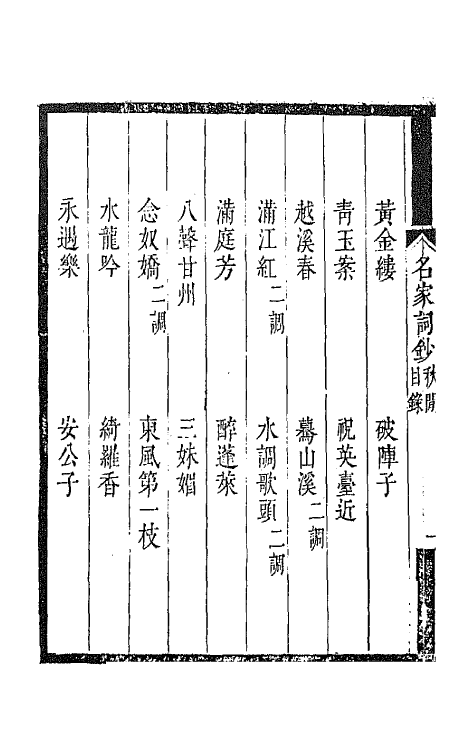 名家詞鈔 秋閒目錄
黃金縷 破陣子
青玉案 祝英臺近
越溪春 驀山溪二調
滿江紅二調 水調歌頭二調
滿庭芳 醉蓬萊
八聲甘州 三姝媚
念奴嬌二調 東風第一枝
水龍吟 綺羅香
永遇樂 安公子